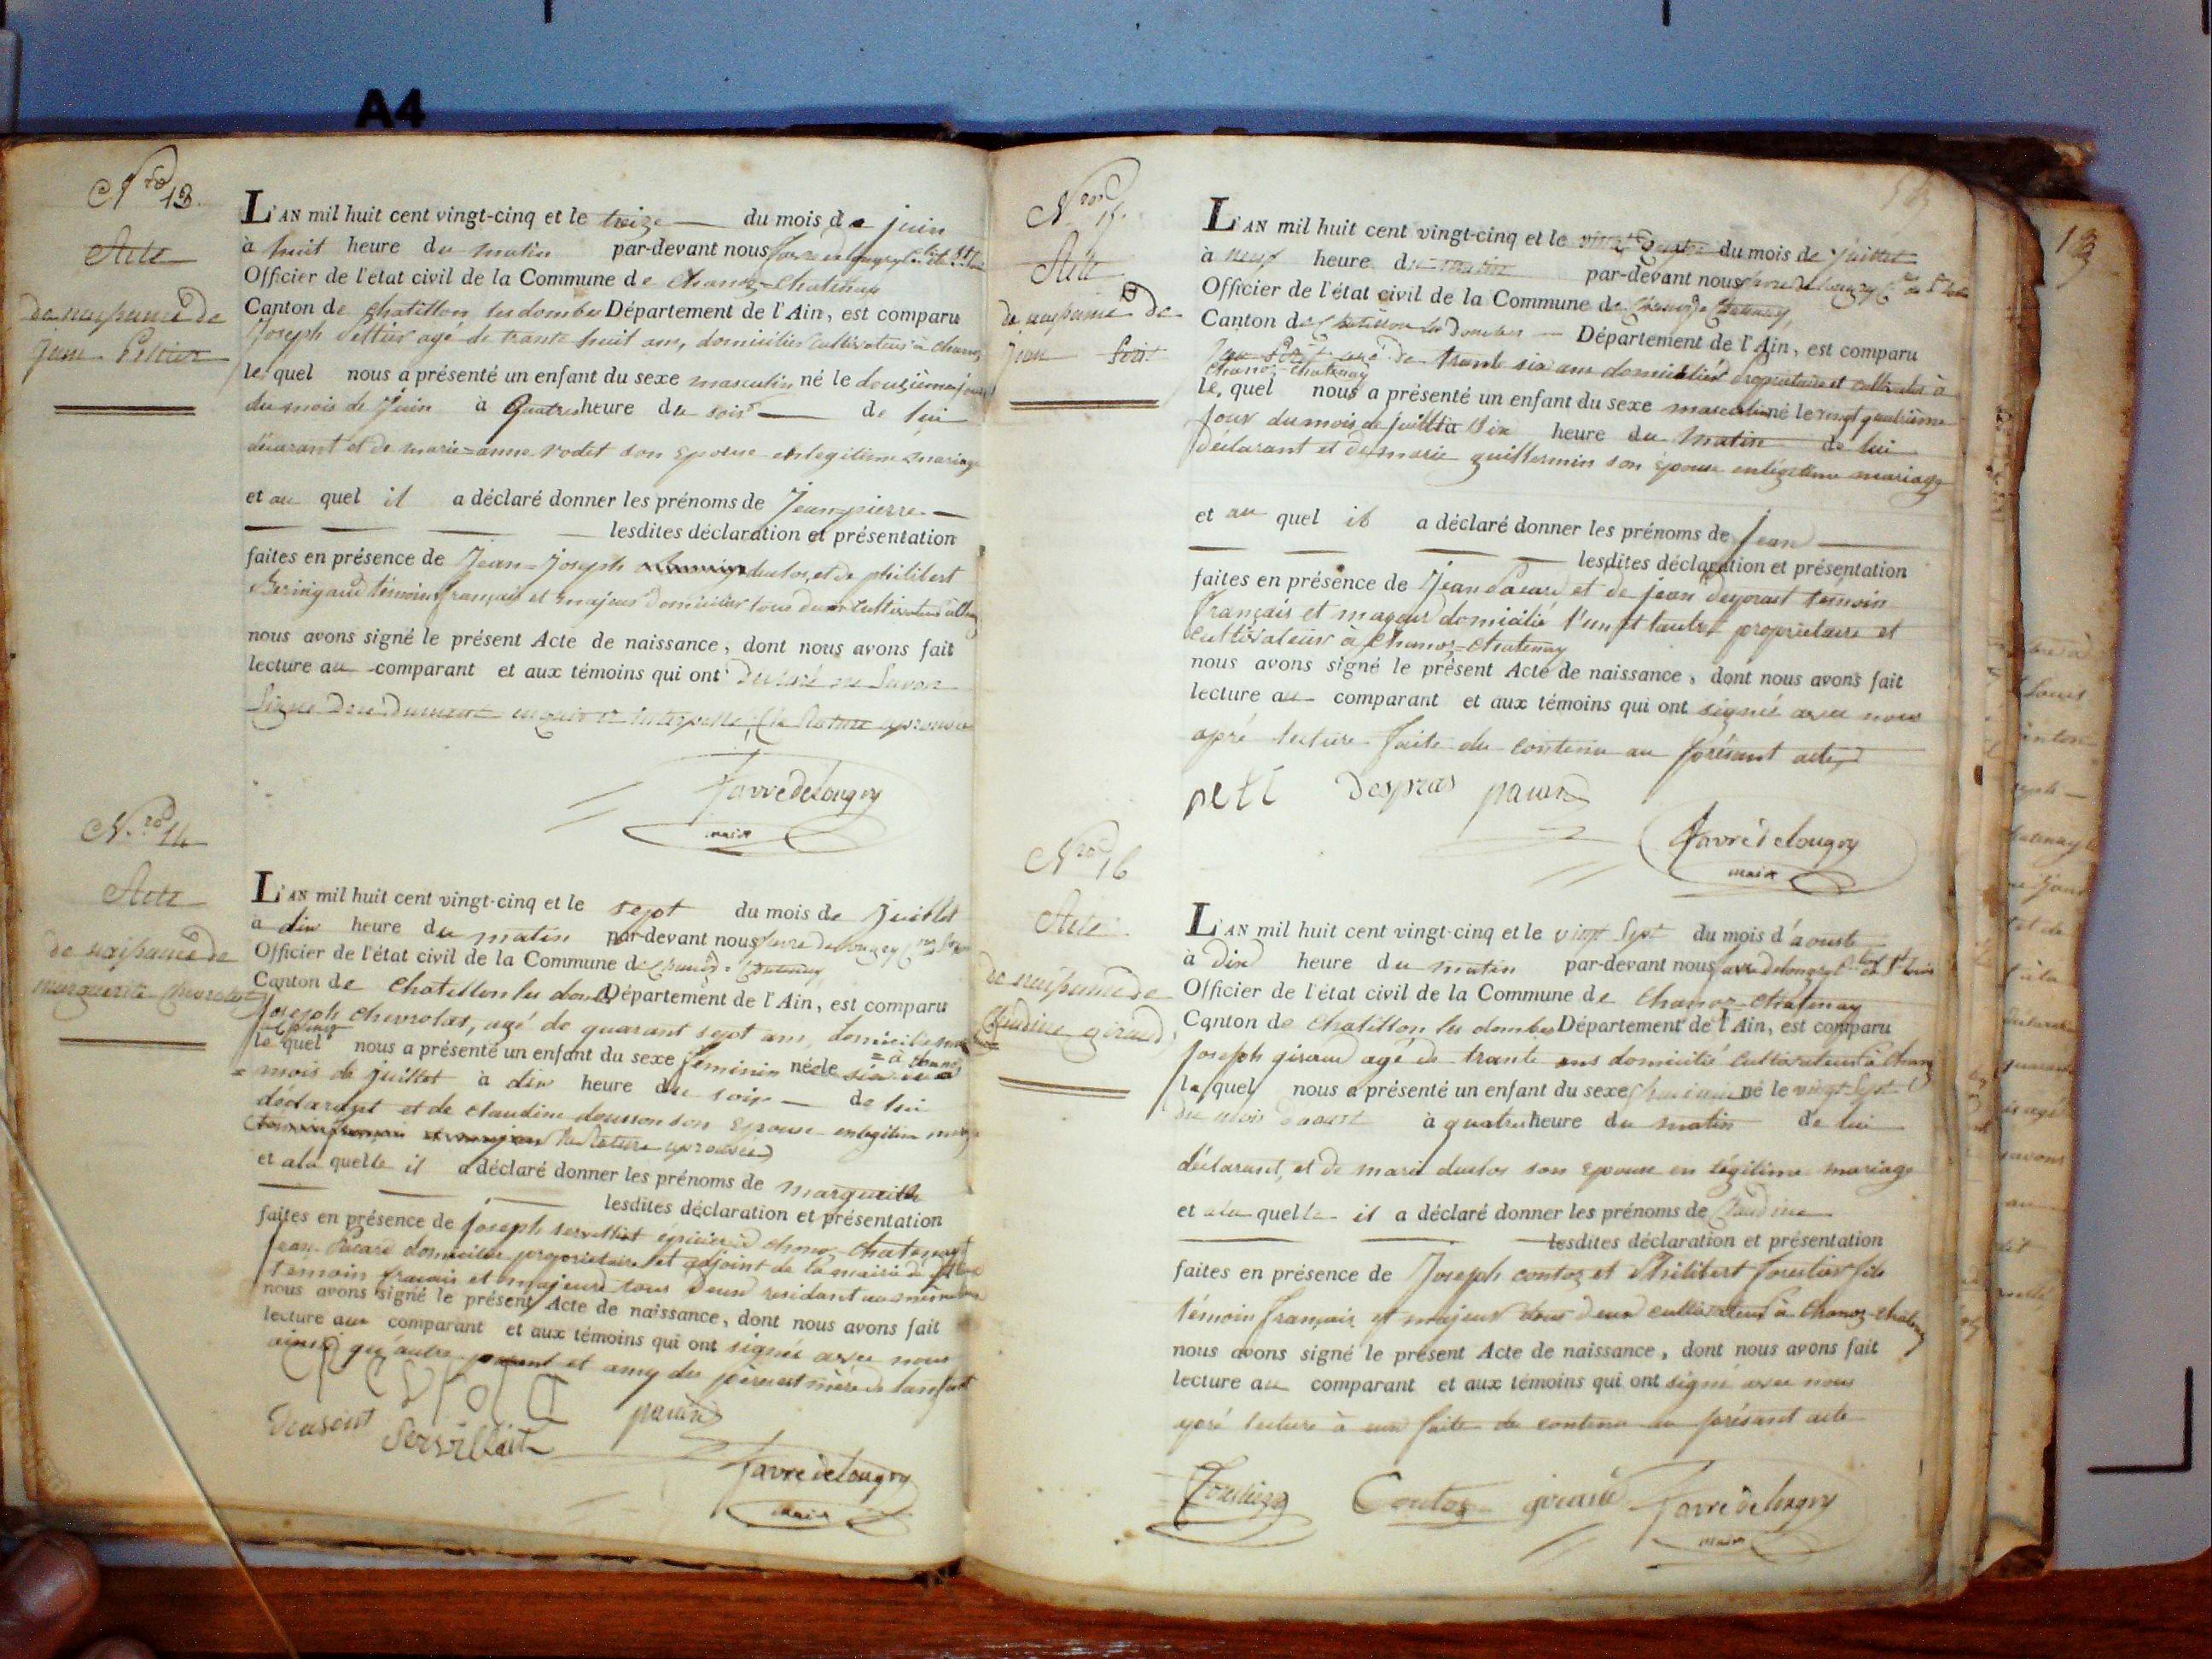 A4
Nro 13.
Acte
de naissance de
Jean Peltier
L'AN mil huit cent vingt-cinq et le treize du mois de juin
à huit heure du matin par-devant nous favre de Longry
Officier de l'état civil de la Commune de Chanoz-Chatenay
Canton de chatillon les dombes Département de l'Ain, est comparu
Joseph Peltier agé de trante huit ans, domicilier cultivateur à chanoz
le quel nous a présenté un enfant du sexe masculin né le douzième jour
du mois de Juin à quatre heure du soir de lui
déclarant et de marie=anne rodet son epouse en legitime mariage
et au quel il a déclaré donner les prénoms de Jean pierre
lesdites déclaration et présentation
faites en présence de Jean=Joseph duclos, et de philibert
témoins français et majeur domicilier tous deux cultivateur
nous avons signé le présent Acte de naissance, dont nous avons fait
lecture au comparant et aux témoins qui ont déclaré ne savoir
signé de ce dument enquis et interpellé, (la Rature aprouvé
favre de Longry
maire
Nro 14
Acte
de naissance de
marguerite chevrolat
L'AN mil huit cent vingt-cinq et le sept du mois de Juillet
à dix heure du matin par-devant nous favre de longry
Officier de l'état civil de la Commune de Chanoz=Chatenay
Canton de chatillon les dombes Département de l'Ain, est comparu
Joseph chevrolat, agé de quarant sept ans, domicilié
le quel nous a présenté un enfant du sexe féminin née le six du
mois de juillet à dix heure du soir de lui
déclarant et de claudine son epouse en legitime mariage
la Rature aprouvée)
et a la quelle il a déclaré donner les prénoms de marguerite
lesdites déclaration et présentation
faites en présence de joseph servillat à chanoz-chatenay et
jean Pacard domicilier proprietaire et adjoint de la mairie de
témoin français et majeurs tous deux residant
nous avons signé le présent Acte de naissance, dont nous avons fait
lecture au comparant et aux témoins qui ont signés avec nous
ainsi qu'autre parent et amy du père et mère de l'anfant
Servillat pacard
favre de Longry
maire
Nro 15.
Acte
de naissance de
Jean Petit
L'AN mil huit cent vingt-cinq et le vingt quatre du mois de Juillet
à neuf heure du matin par-devant nous favre de longry
Officier de l'état civil de la Commune de Chanoz Chatenay,
Canton de Chatillon les Dombes Département de l'Ain, est comparu
Jean Petit agé de trante six ans domicilier proprietaire et cultivateur à
chanoz-chatenay
le quel nous a présenté un enfant du sexe masculin né le vingt quatrième
jour du mois de juillet à six heure du matin de lui
déclarant et de marie guillermin son épouse en légitime mariage
et au quel il a déclaré donner les prénoms de jean
lesdites déclaration et présentation
faites en présence de Jean Pacard et de jean témoin
français et majeur domicilié l'un et l'autre proprietaire et
cultivateur à chanoz=chatenay
nous avons signé le présent Acte de naissance, dont nous avons fait
lecture au comparant et aux témoins qui ont signé avec nous
apré lecture faite du contenu au présent acte,
petit Despras pacard
favre de Longry
maire
Nro 16
Acte
de naissance de
Claudine giraud
L'AN mil huit cent vingt-cinq et le vingt Sept du mois d'aoust
à Dix heure du matin par-devant nous favre de longry
Officier de l'état civil de la Commune de Chanoz-Chatenay
Canton de chatillon les dombes Département de l'Ain, est comparu
Joseph giraud agé de trante ans domicilié cultivateur à chanoz
le quel nous a présenté un enfant du sexe feminin né le vingt Sept
du mois d'aoust à quatre heure du matin de lui
déclarant, et de marie duclos son epouse en légitime mariage
et a la quelle il a déclaré donner les prénoms de Claudine
lesdites déclaration et présentation
faites en présence de Joseph contoz et Philibert forestier fils
témoin français et majeur tous deux cultivateur à Chanoz-chatenay
nous avons signé le présent Acte de naissance, dont nous avons fait
lecture au comparant et aux témoins qui ont signé avec nous
apré lecture à eux faite du contenu au présent acte
Contoz giraud favre de longry
maire